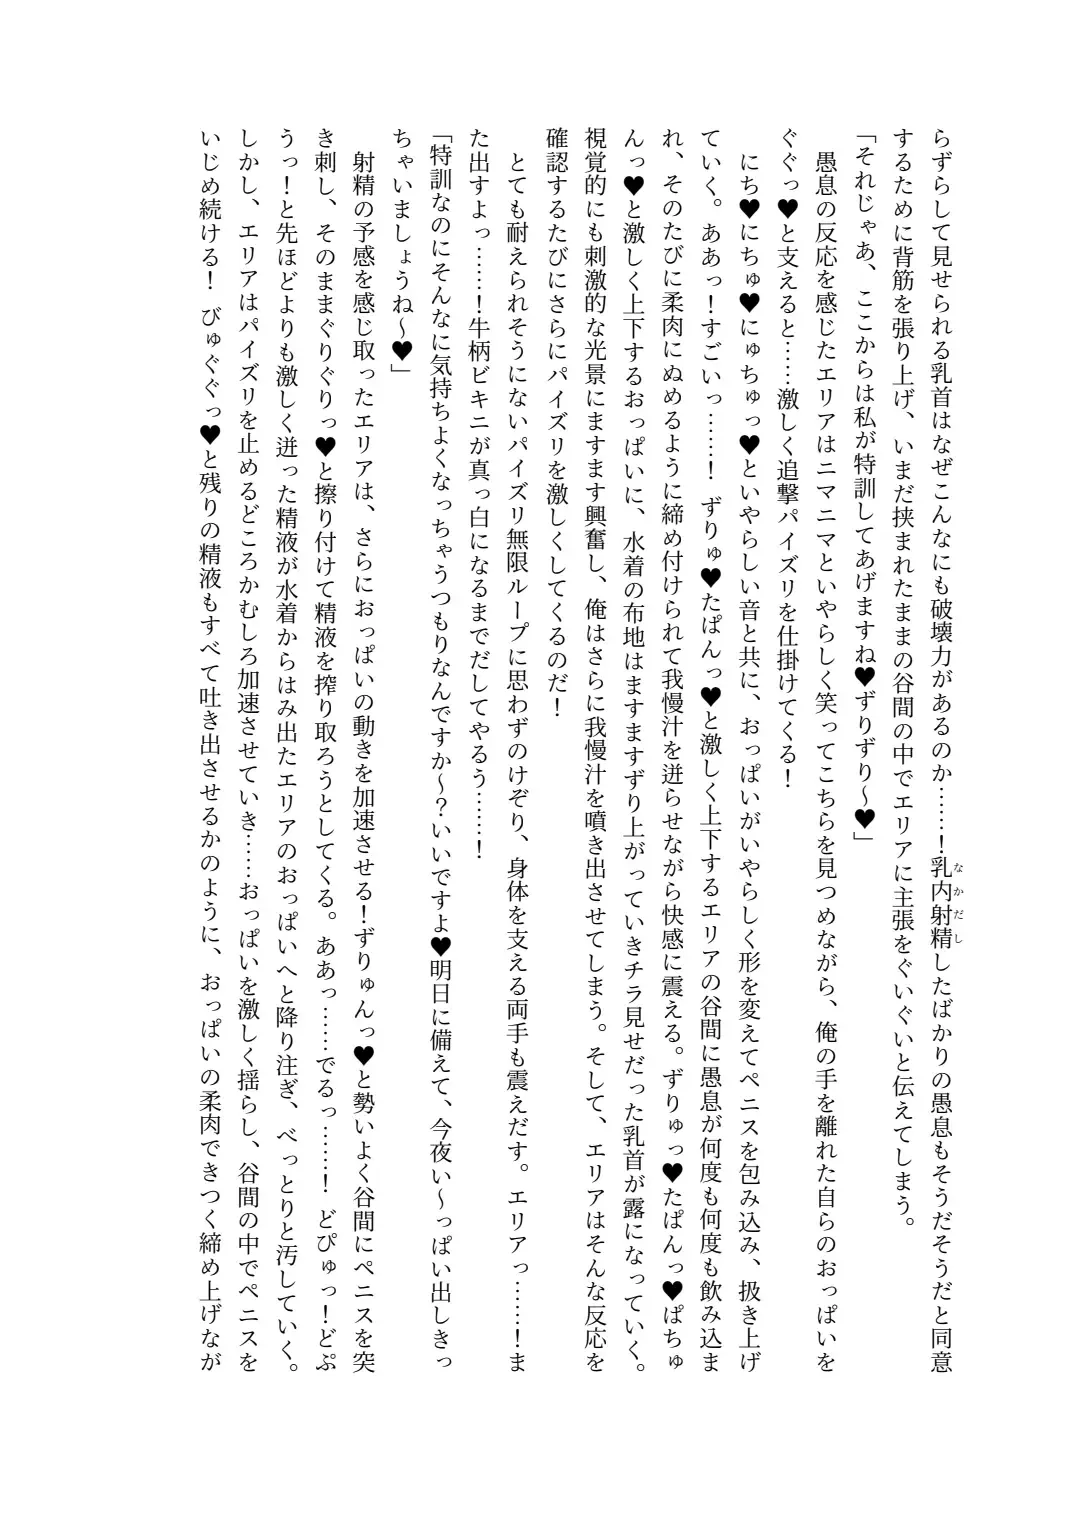 らずらして見せられる乳首はなぜこんなにも破壊力があるのか……！乳内射精したばかりの愚息もそうだそうだと同意
なかだし
するために背筋を張り上げ、いまだ挟まれたままの谷間の中でエリアに主張をぐいぐいと伝えてしまう。
「それじゃあ、ここからは私が特訓してあげますね♥ずりずり～♥」
愚息の反応を感じたエリアはニマニマといやらしく笑ってこちらを見つめながら、俺の手を離れた自らのおっぱいを
ぐぐっ♥と支えると……激しく追撃パイズリを仕掛けてくる！
にち♥にちゅ♥にゅちゅっ♥といやらしい音と共に、おっぱいがいやらしく形を変えてペニスを包み込み、扱き上げ
ていく。ああっ！すごいっ……！　ずりゅ♥たぱんっ♥と激しく上下するエリアの谷間に愚息が何度も何度も飲み込ま
れ、そのたびに柔肉にぬめるように締め付けられて我慢汁を迸らせながら快感に震える。ずりゅっ♥たぱんっ♥ぱちゅ
んっ♥と激しく上下するおっぱいに、水着の布地はますますずり上がっていきチラ見せだった乳首が露になっていく。
視覚的にも刺激的な光景にますます興奮し、俺はさらに我慢汁を噴き出させてしまう。そして、エリアはそんな反応を
確認するたびにさらにパイズリを激しくしてくるのだ！
とても耐えられそうにないパイズリ無限ループに思わずのけぞり、身体を支える両手も震えだす。エリアっ……！ま
た出すよっ……！牛柄ビキニが真っ白になるまでだしてやるう……！
「特訓なのにそんなに気持ちよくなっちゃうつもりなんですか～？いいですよ♥明日に備えて、今夜い～っぱい出しきっ
ちゃいましょうね～♥」
射精の予感を感じ取ったエリアは、さらにおっぱいの動きを加速させる！ずりゅんっ♥と勢いよく谷間にペニスを突
き刺し、そのままぐりぐりっ♥と擦り付けて精液を搾り取ろうとしてくる。ああっ……でるっ……！　どぴゅっ！どぷ
うっ！と先ほどよりも激しく迸った精液が水着からはみ出たエリアのおっぱいへと降り注ぎ、べっとりと汚していく。
しかし、エリアはパイズリを止めるどころかむしろ加速させていき……おっぱいを激しく揺らし、谷間の中でペニスを
いじめ続ける！　びゅぐぐっ♥と残りの精液もすべて吐き出させるかのように、おっぱいの柔肉できつく締め上げなが